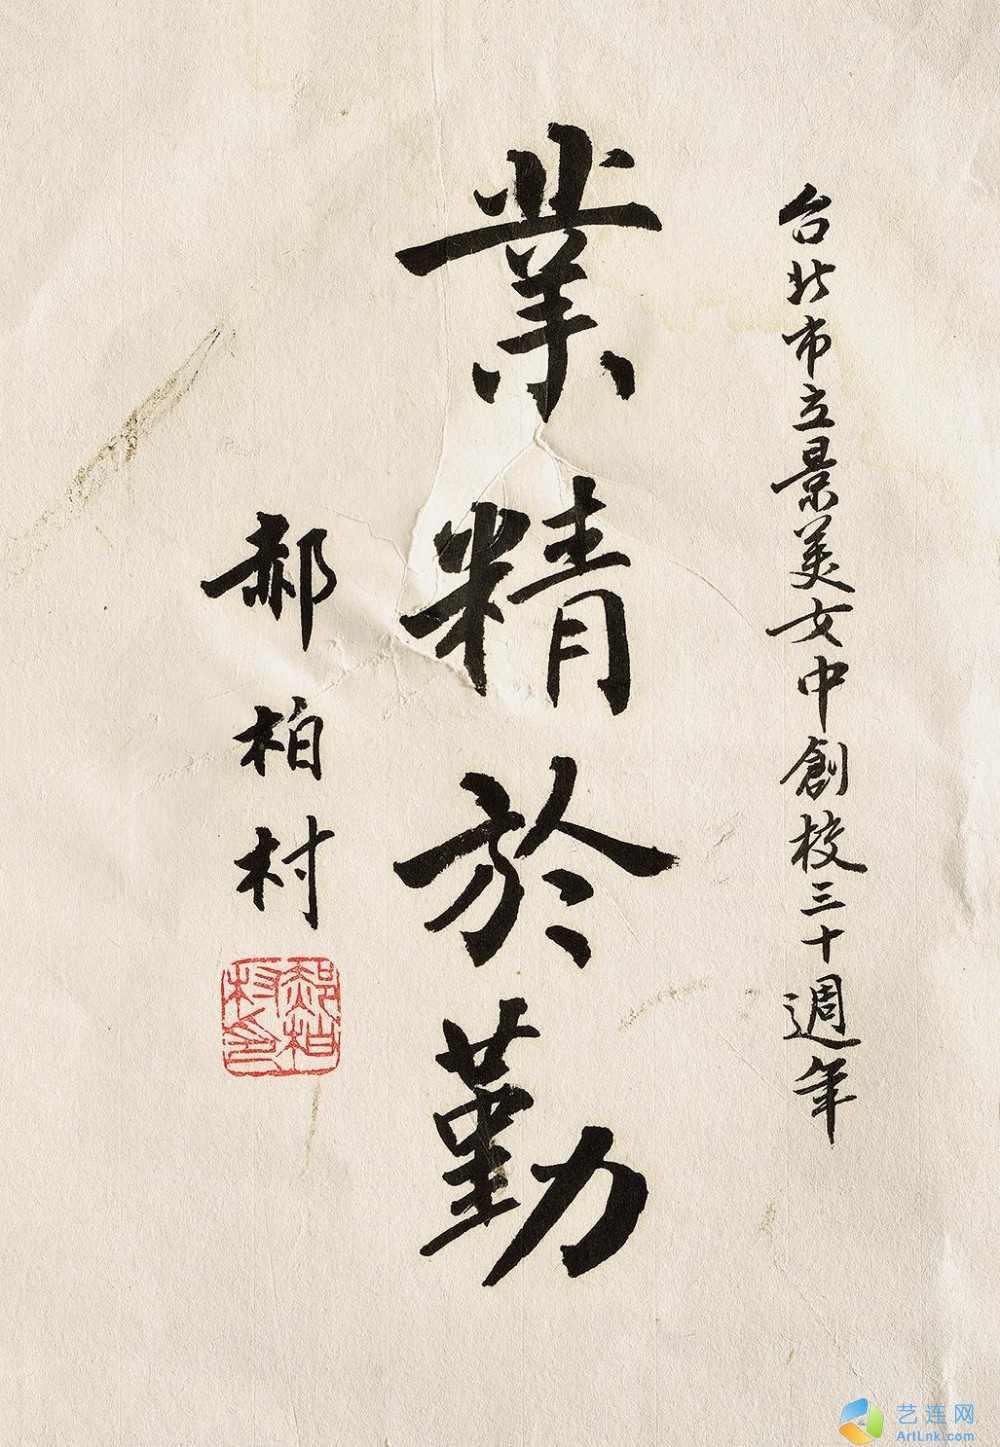 台北市立景美女中創校三十週年
業精於勤
郝柏村
郝柏村印
艺连网
ArtLnk.com